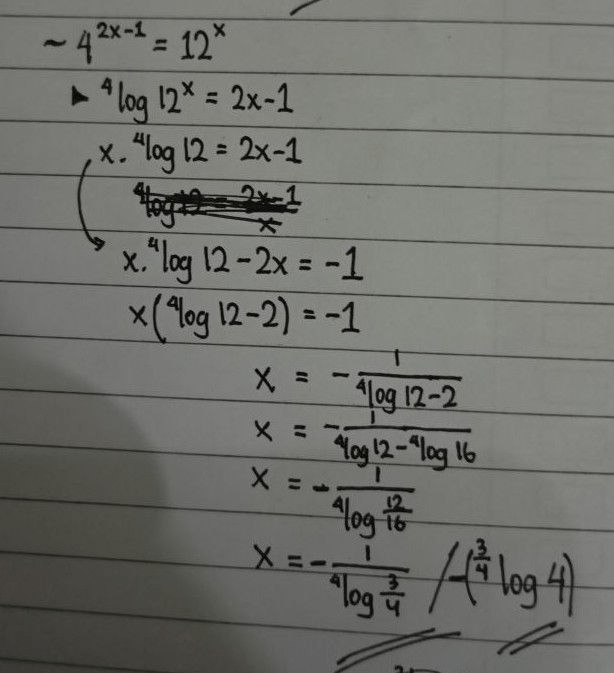 ~ 4^{2x-1} = 12^x
▶ ⁴log 12^x = 2x-1
x. ⁴log 12 = 2x-1
x. ⁴log 12 - 2x = -1
x(⁴log 12 - 2) = -1
x = - 1/(⁴log 12 - 2)
x = - 1/(⁴log 12 - ⁴log 16)
x = - 1/(⁴log 12/16)
x = - 1/(⁴log 3/4) / -(^{3/4}log 4)